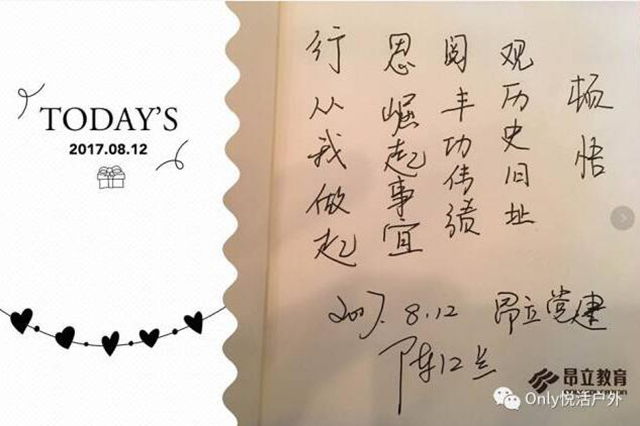 TODAY'S
2017.08.12
顿悟
观历史旧址
阅丰功伟绩
思崛起事宜
行从我做起
2017.8.12 昂立党建
陈江兰
昂立教育
Only悦活户外